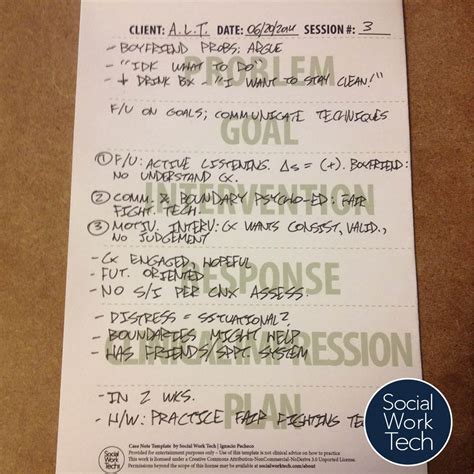 CLIENT: A.L.T. DATE: 06/20/2014 SESSION #: 3
- BOYFRIEND PROBS; ARGUE
- "IDK WHAT TO DO"
PROBLEM
- + DRINK BX - "I WANT TO STAY CLEAN!"
F/U ON GOALS; COMMUNICATE TECHNIQUES
GOAL
① F/U: ACTIVE LISTENING. Δs = (+). BOYFRIEND:
NO UNDERSTAND CX.
INTERVENTION
② COMM. & BOUNDARY PSYCHO-ED: FAIR
FIGHT. TECH.
③ MOTIV. INTERV: CX WANTS CONSIST, VALID.,
NO JUDGEMENT
- CX ENGAGED, HOPEFUL
- FUT. ORIENTED
RESPONSE
- NO S/I PER CNX ASSESS.
- DISTRESS = SITUATIONAL?
- BOUNDARIES MIGHT HELP
CLINICAL IMPRESSION
- HAS FRIENDS/SPPT. SYSTEM
- IN 2 WKS.
PLAN
- H/W: PRACTICE FAIR FIGHTING TE
Social
Work
Tech
Case Note Template by Social Work Tech | Ignacio Pacheco
Provided for entertainment purposes only - Use of this template is not clinical advice on how to practice
This work is licensed under a Creative Commons Attribution-NonCommercial-NoDerivs 3.0 Unported License.
Permissions beyond the scope of this license may be available at socialworktech.com/about
Social
Work
Tech